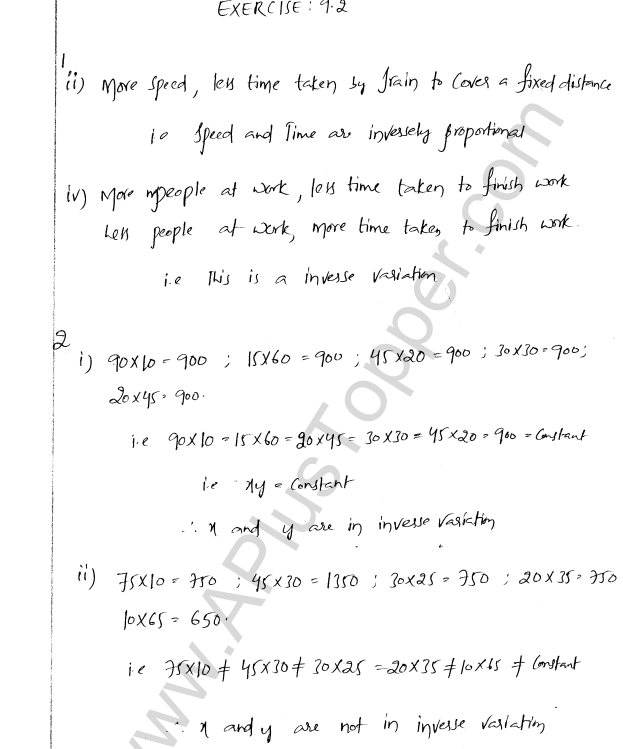 EXERCISE: 9.2
1
ii) More speed, less time taken by train to cover a fixed distance
i.e Speed and Time are inversely proportional
iv) More people at work, less time taken to finish work
Less people at work, more time taken to finish work.
i.e This is a inverse variation
2
i) 90X10 = 900 ; 15X60 = 900 ; 45X20 = 900 ; 30X30 = 900;
20X45 = 900.
i.e 90X10 = 15X60 = 20X45 = 30X30 = 45X20 = 900 = Constant
i.e xy = Constant
∴ x and y are in inverse variation
ii) 75X10 = 750 ; 45X30 = 1350 ; 30X25 = 750 ; 20X35 = 750
10X65 = 650.
i.e 75X10 ≠ 45X30 ≠ 30X25 = 20X35 ≠ 10X65 ≠ Constant
∴ x and y are not in inverse variation
www.APlusTopper.com